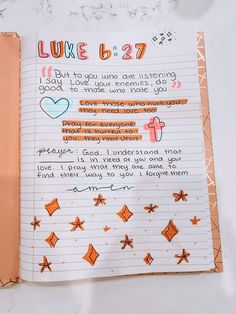 LUKE 6:27
"But to you who are listening
I say: Love your enemies, do
good to those who hate you"
Love those who hurt you,
they need love too!
Pray for everyone
that is hurtful to
you, they need Jesus
prayer: God, I understand that
is in need of you and your
love. I pray that they are able to
find their way to you. I forgive them.
amen